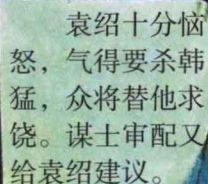 袁绍十分恼
怒，气得要杀韩
猛，众将替他求
饶。谋士审配又
给袁绍建议。